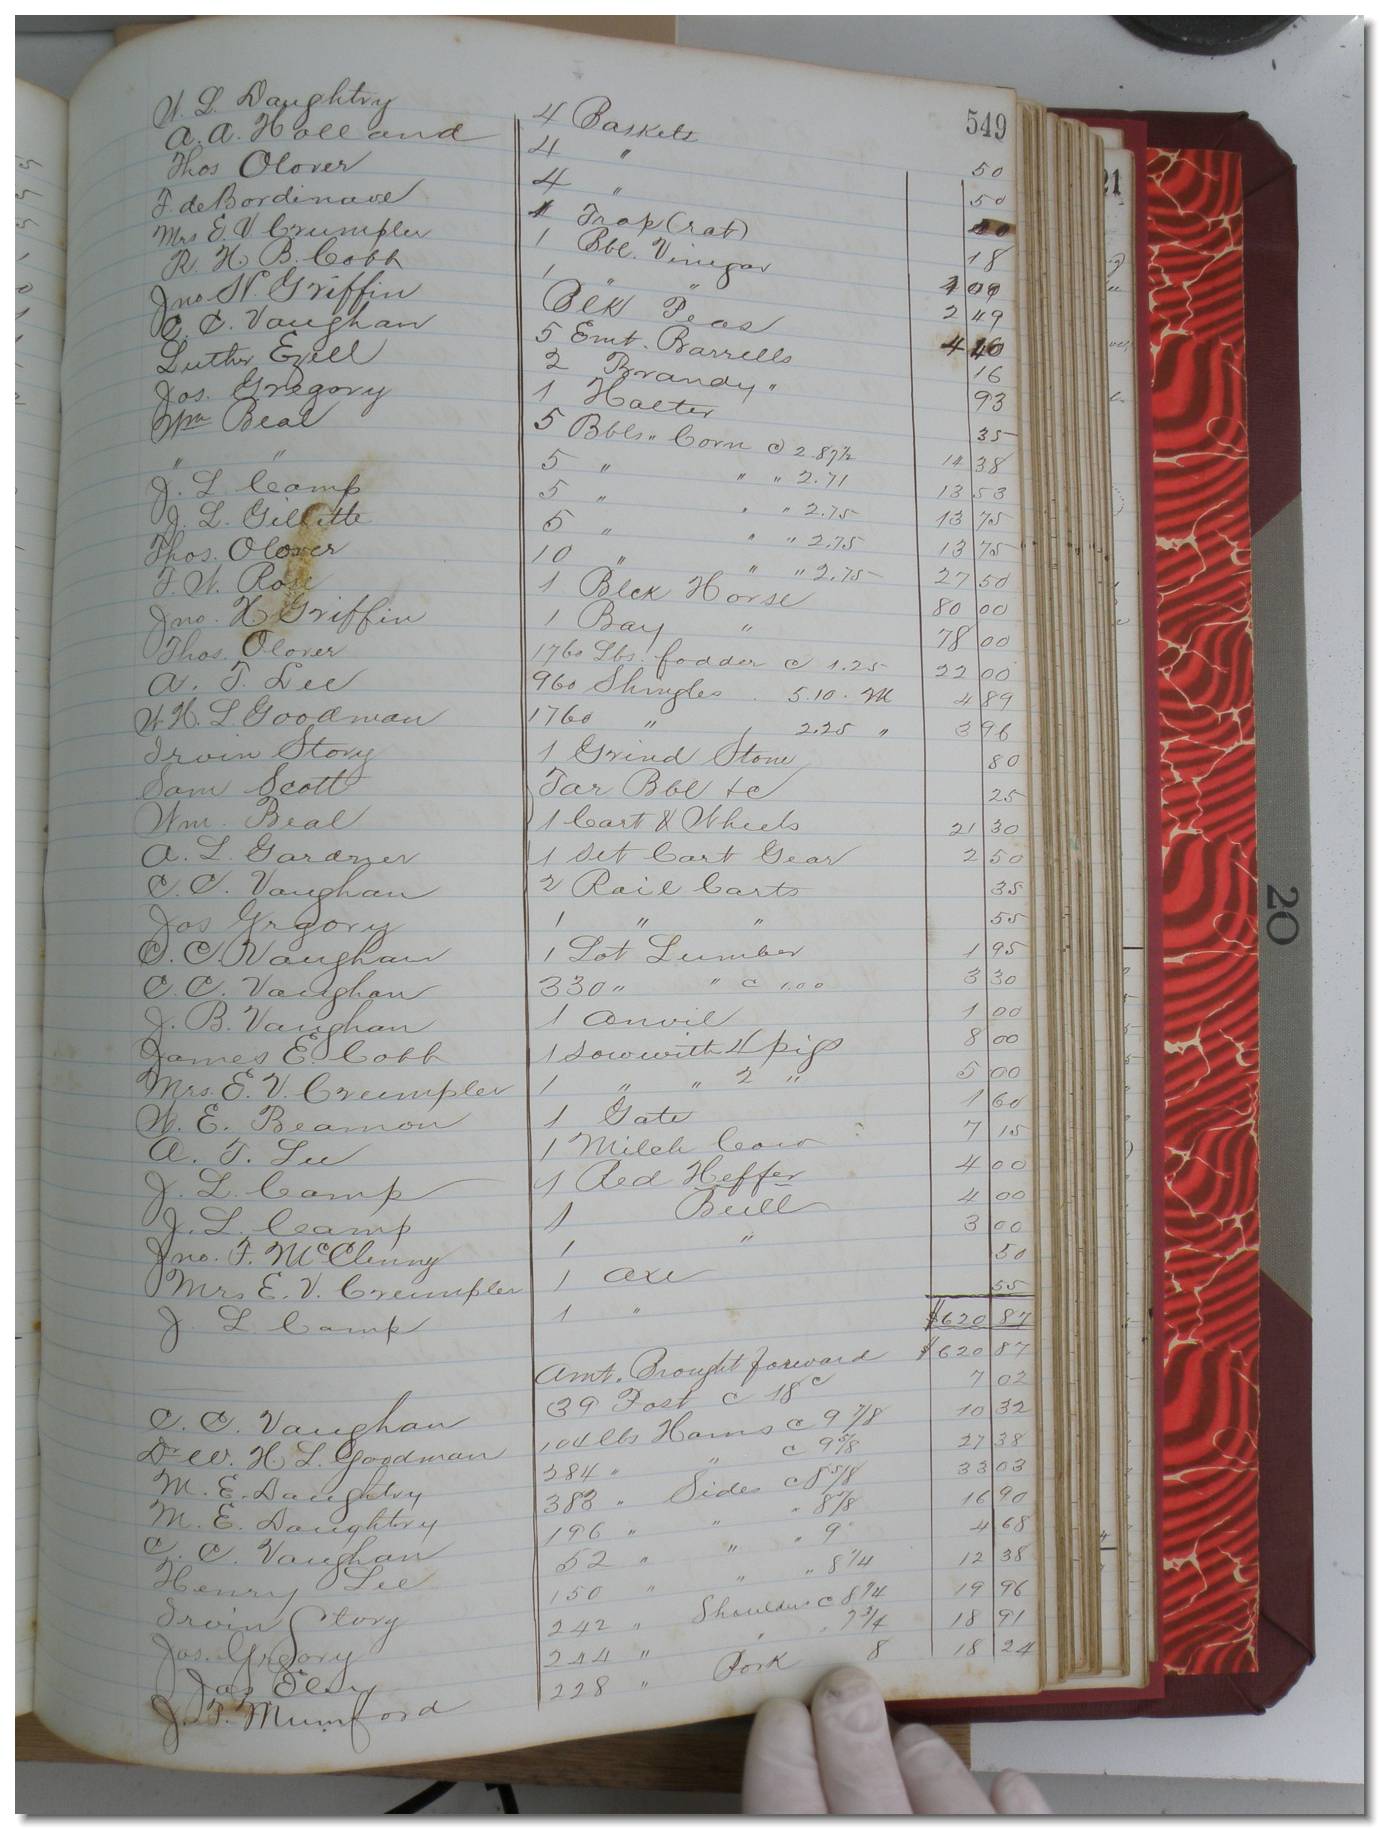 549
W. L. Daughtry 4 Baskets 50
A. A. Holland 4 " 50
Thos Olover 4 "
F. deBordinave 1 Trap (rat) 18
Mrs E. V. Crumpler 1 Bbl. Vinegar
R. H. B. Cobb 1 " " 2 49
Jno. H. Griffin Blk Peas 4 40
C. C. Vaughan 5 Emt. Barrells 16
Luther Ezell 2 Brandy " 93
Jos. Gregory 1 Halter 35
Wm Beal 5 Bbls. Corn @ 2.87½ 14 38
" " 5 " " " 2.71 13 53
J. L. Camp 5 " " " 2.75 13 75
J. L. Gillette 5 " " " 2.75 13 75
Thos. Olover 10 " " " 2.75 27 50
F. W. Rose 1 Blck Horse 80 00
Jno. H Griffin 1 Bay " 78 00
Thos. Olover 1760 Lbs. fodder @ 1.25 22 00
A. T. Lee 960 Shingles 5.10 M 4 89
W. H. L Goodman 1760 " 2.25 " 3 96
Irvin Story 1 Grind Stone 80
Sam Scott Tar Bbl &c 25
Wm. Beal 1 Cart & Wheels 21 30
A. L. Gardner 1 set Cart Gear 2 50
C. C. Vaughan 2 Rail Carts 35
Jos Grgory 1 " " 55
C. C. Vaughan 1 Lot Lumber 1 95
C. C. Vaughan 330 " " @ 1.00 3 30
J. B. Vaughan 1 Anvil 1 00
James E. Cobb 1 sow with 4 pigs 8 00
Mrs. E. V. Crumpler 1 " " 2 " 5 00
W. E. Beamon 1 Gate 1 60
A. T. Lee 1 Milch Cow 7 15
J. L. Camp 1 Red Heffer 4 00
J. L. Camp 1 Bull 4 00
Jno. T. McClenny 1 " 3 00
Mrs E. V. Crumpler 1 Axe 50
J L Camp 1 " 55
$620 87
Amt. Brought forward $620 87
C. C. Vaughan 39 Post @ 18c 7 02
Dr W. H. L. Goodman 104 lbs Hams @ 9 7/8 10 32
M. E. Daughtry 284 " " @ 9 5/8 27 38
M. E. Daughtry 383 " Sides @ 8 5/8 33 03
C. C. Vaughan 196 " " " 8 5/8 16 90
Henry Lee 52 " " " 9 4 68
Irvin Story 150 " " " 8 1/4 12 38
Jos. Gregory 242 " Shoulders @ 8 1/4 19 96
244 " " " 7 3/4 18 91
J. T. Mumford 228 " Pork 8 18 24
21
20